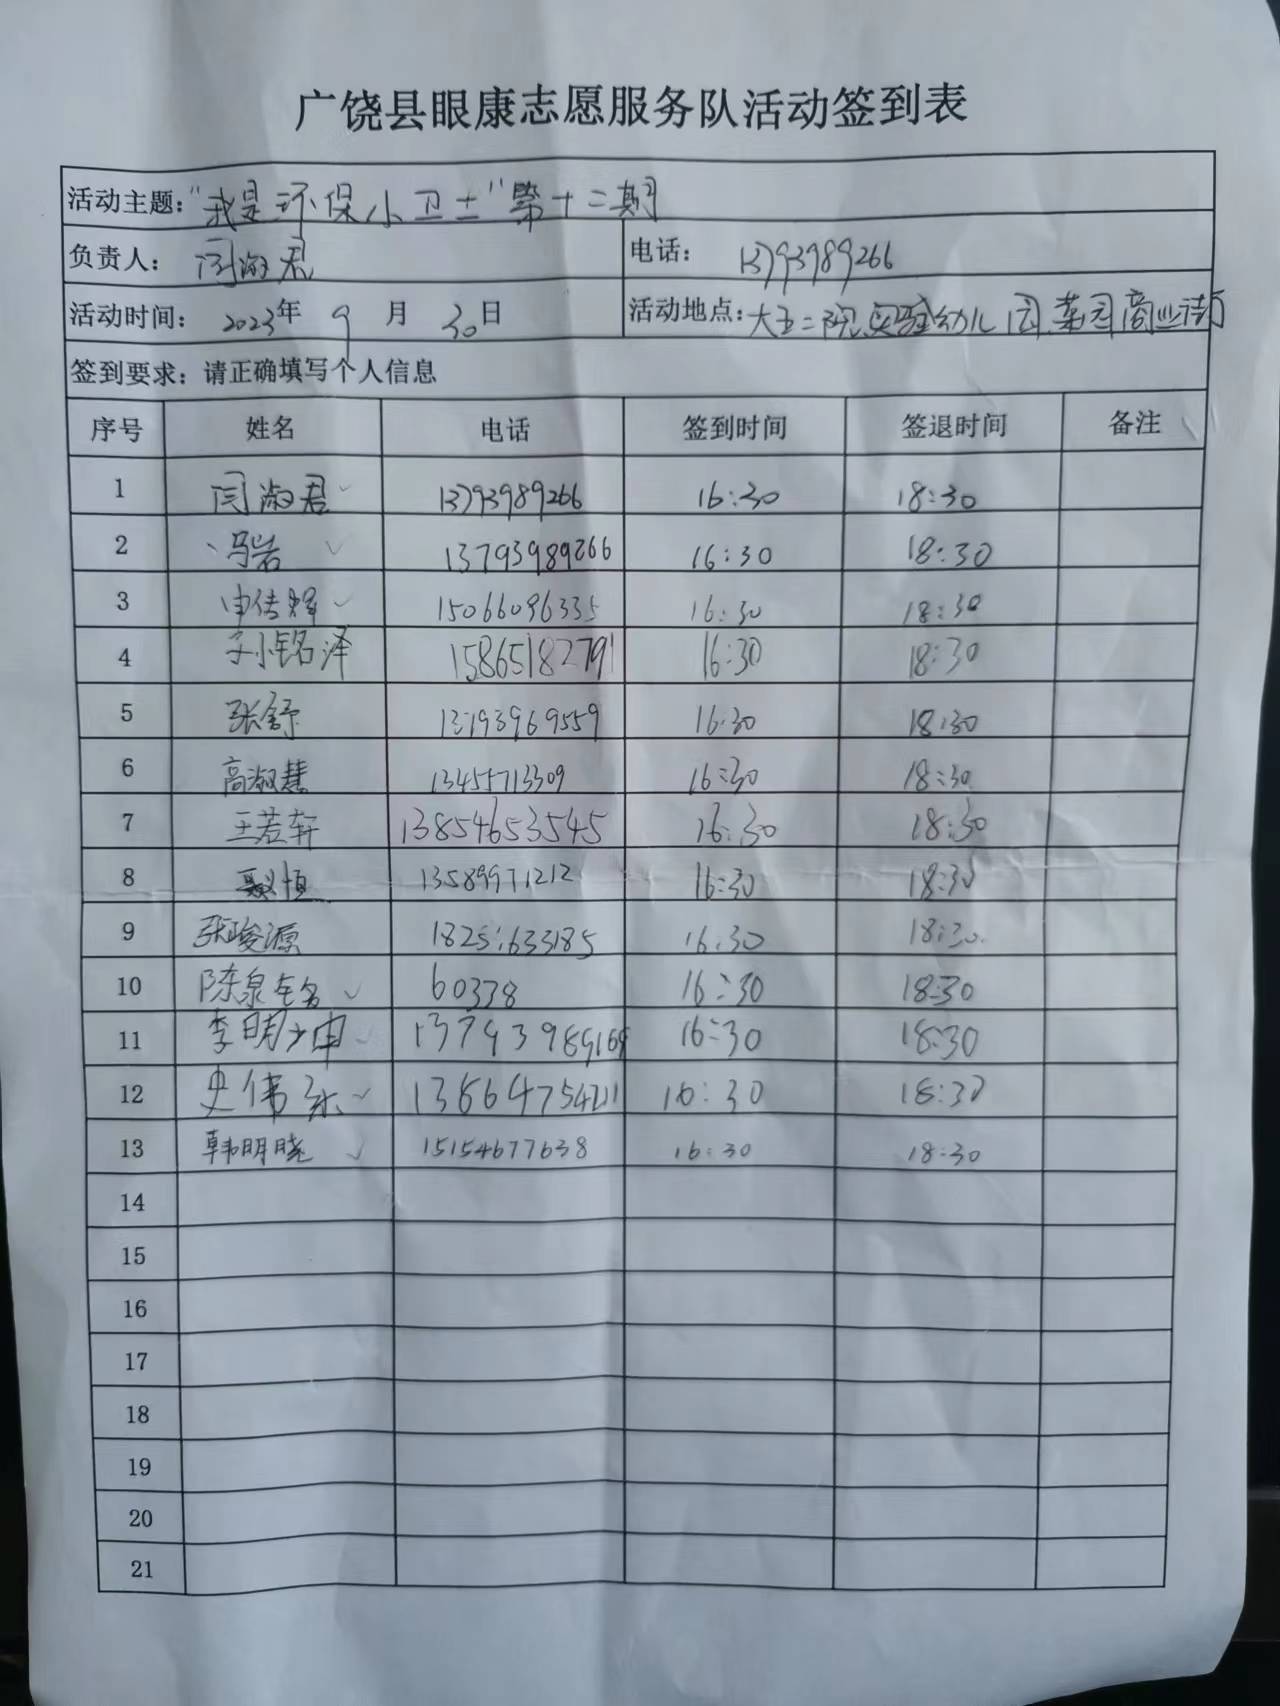 广饶县眼康志愿服务队活动签到表
活动主题："我是环保小卫士"第十二期
负责人：闫淑君 电话：13793989266
活动时间：2023年9月30日 活动地点：大王二院实验幼儿园菜园商业街
签到要求：请正确填写个人信息
序号 姓名 电话 签到时间 签退时间 备注
1 闫淑君 13793989266 16:30 18:30
2 冯岩 13793989266 16:30 18:30
3 申传辉 15066096335 16:30 18:30
4 孙铭泽 15865182791 16:30 18:30
5 张舒 13793969559 16:30 18:30
6 高淑慧 13455713309 16:30 18:30
7 王若轩 13854653545 16:30 18:30
8 聂义恒 13589971212 16:30 18:30
9 张峻源 18251633185 16:30 18:30
10 陈泉 60338 16:30 18:30
11 李明 13793989169 16:30 18:30
12 史伟 13664754211 16:30 18:30
13 韩明晓 15154677638 16:30 18:30
14
15
16
17
18
19
20
21